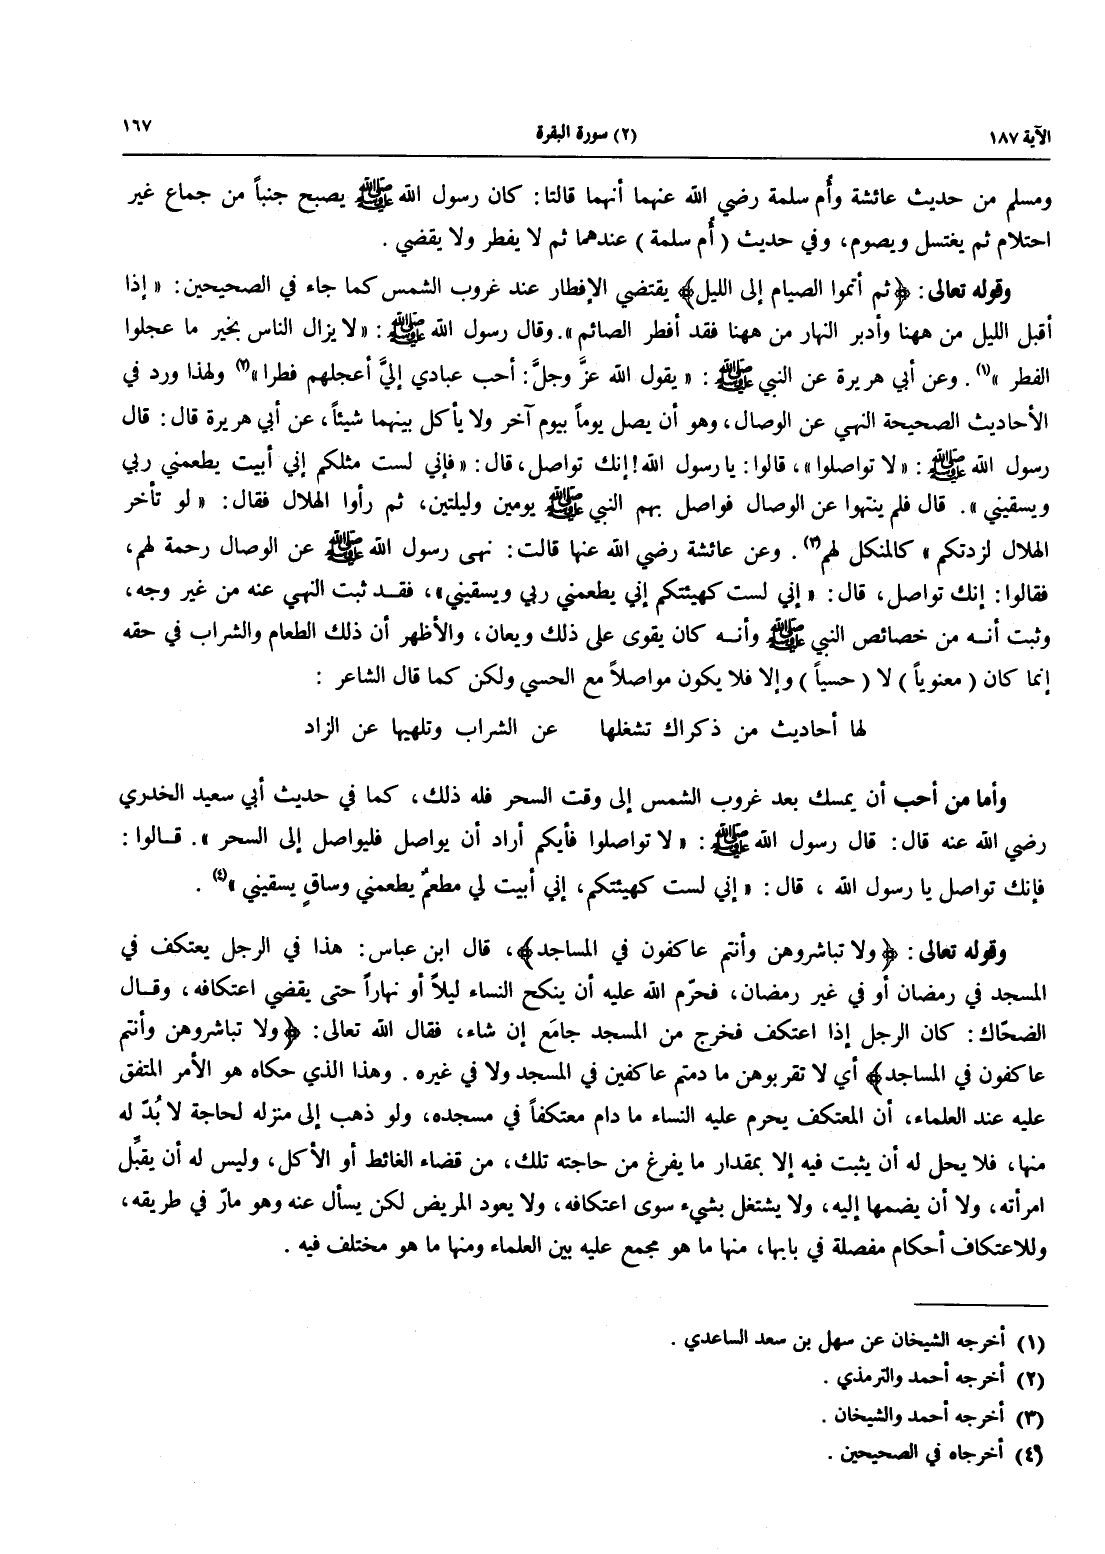 الآية ١٨٧ (٢) سورة البقرة ١٦٧
ومسلم من حديث عائشة وأُم سلمة رضي الله عنهما أنهما قالتا: كان رسول الله ﷺ يصبح جنباً من جماع غير
احتلام ثم يغتسل ويصوم، وفي حديث (أُم سلمة) عندهما ثم لا يفطر ولا يقضي.
وقوله تعالى: ﴿ثم أتموا الصيام إلى الليل﴾ يقتضي الإفطار عند غروب الشمس كما جاء في الصحيحين: «إذا
أقبل الليل من ههنا وأدبر النهار من ههنا فقد أفطر الصائم». وقال رسول الله ﷺ: «لا يزال الناس بخير ما عجلوا
الفطر»(١). وعن أبي هريرة عن النبي ﷺ: «يقول الله عزَّ وجلَّ: أحب عبادي إليَّ أعجلهم فطرا»(٢) ولهذا ورد في
الأحاديث الصحيحة النهي عن الوصال، وهو أن يصل يوماً بيوم آخر ولا يأكل بينهما شيئاً، عن أبي هريرة قال: قال
رسول الله ﷺ: «لا تواصلوا»، قالوا: يا رسول الله! إنك تواصل، قال: «فإني لست مثلكم إني أبيت يطعمني ربي
ويسقيني». قال فلم ينتهوا عن الوصال فواصل بهم النبي ﷺ يومين وليلتين، ثم رأوا الهلال فقال: «لو تأخر
الهلال لزدتكم» كالمنكل لهم(٣). وعن عائشة رضي الله عنها قالت: نهى رسول الله ﷺ عن الوصال رحمة لهم،
فقالوا: إنك تواصل، قال: «إني لست كهيئتكم إني يطعمني ربي ويسقيني»، فقد ثبت النهي عنه من غير وجه،
وثبت أنه من خصائص النبي ﷺ وأنه كان يقوى على ذلك ويعان، والأظهر أن ذلك الطعام والشراب في حقه
إنما كان (معنوياً) لا (حسياً) وإلا فلا يكون مواصلاً مع الحسي ولكن كما قال الشاعر :
لها أحاديث من ذكراك تشغلها عن الشراب وتلهيها عن الزاد
وأما من أحب أن يمسك بعد غروب الشمس إلى وقت السحر فله ذلك، كما في حديث أبي سعيد الخدري
رضي الله عنه قال: قال رسول الله ﷺ: «لا تواصلوا فأيكم أراد أن يواصل فليواصل إلى السحر». قالوا:
فإنك تواصل يا رسول الله، قال: «إني لست كهيئتكم، إني أبيت لي مطعمٌ يطعمني وساقٍ يسقيني»(٤).
وقوله تعالى: ﴿ولا تباشروهن وأنتم عاكفون في المساجد﴾، قال ابن عباس: هذا في الرجل يعتكف في
المسجد في رمضان أو في غير رمضان، فحرّم الله عليه أن ينكح النساء ليلاً أو نهاراً حتى يقضي اعتكافه، وقال
الضحّاك: كان الرجل إذا اعتكف فخرج من المسجد جامَع إن شاء، فقال الله تعالى: ﴿ولا تباشروهن وأنتم
عاكفون في المساجد﴾ أي لا تقربوهن ما دمتم عاكفين في المسجد ولا في غيره. وهذا الذي حكاه هو الأمر المتفق
عليه عند العلماء، أن المعتكف يحرم عليه النساء ما دام معتكفاً في مسجده، ولو ذهب إلى منزله لحاجة لا بُدّ له
منها، فلا يحل له أن يثبت فيه إلا بمقدار ما يفرغ من حاجته تلك، من قضاء الغائط أو الأكل، وليس له أن يقبِّل
امرأته، ولا أن يضمها إليه، ولا يشتغل بشيء سوى اعتكافه، ولا يعود المريض لكن يسأل عنه وهو مارّ في طريقه،
وللاعتكاف أحكام مفصلة في بابها، منها ما هو مجمع عليه بين العلماء ومنها ما هو مختلف فيه.
(١) أخرجه الشيخان عن سهل بن سعد الساعدي.
(٢) أخرجه أحمد والترمذي.
(٣) أخرجه أحمد والشيخان.
(٤) أخرجاه في الصحيحين.